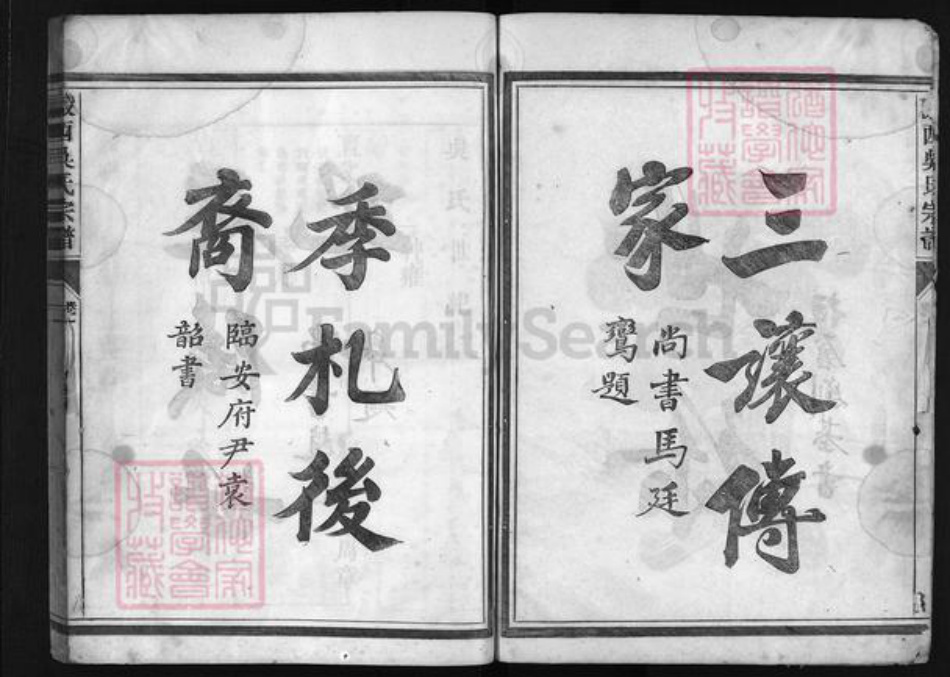 三讓傳
家
尚書馬廷
鸞題
季札後
裔
臨安府尹袁
韶書
西吳氏宗譜
FamilySearch